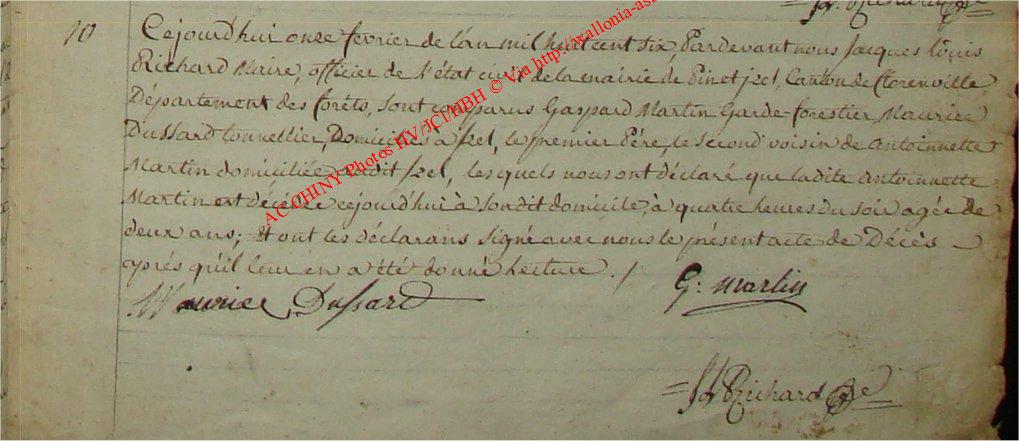 10
Cejourd'hui onze fevrier de l'an mil huit cent six, Pardevant nous Jacques Louis
Richard Maire, officier de l'état civil de la mairie de Pin et jzel, Canton de florenville,
Département des forêts, sont comparus Gaspard Martin Garde-forestier, Maurice
Dussard tonnellier, Domiciliés à jzel, le premier Pére, le second voisin de antoinnette
Martin domiciliée audit jzel, les quels nous ont déclaré que ladite antoinnette
Martin est décédée cejourd'hui à sondit domicile, à quatre heures du soir agée de
deux ans; Et ont les déclarans signé avec nous le présent acte de Décès
aprés qu'il leur en a été donné lecture ./
Maurice Dussard
G: martin
Richard
AC CHINY Photos HV/JCI/HBH © Via http://wallonia-as